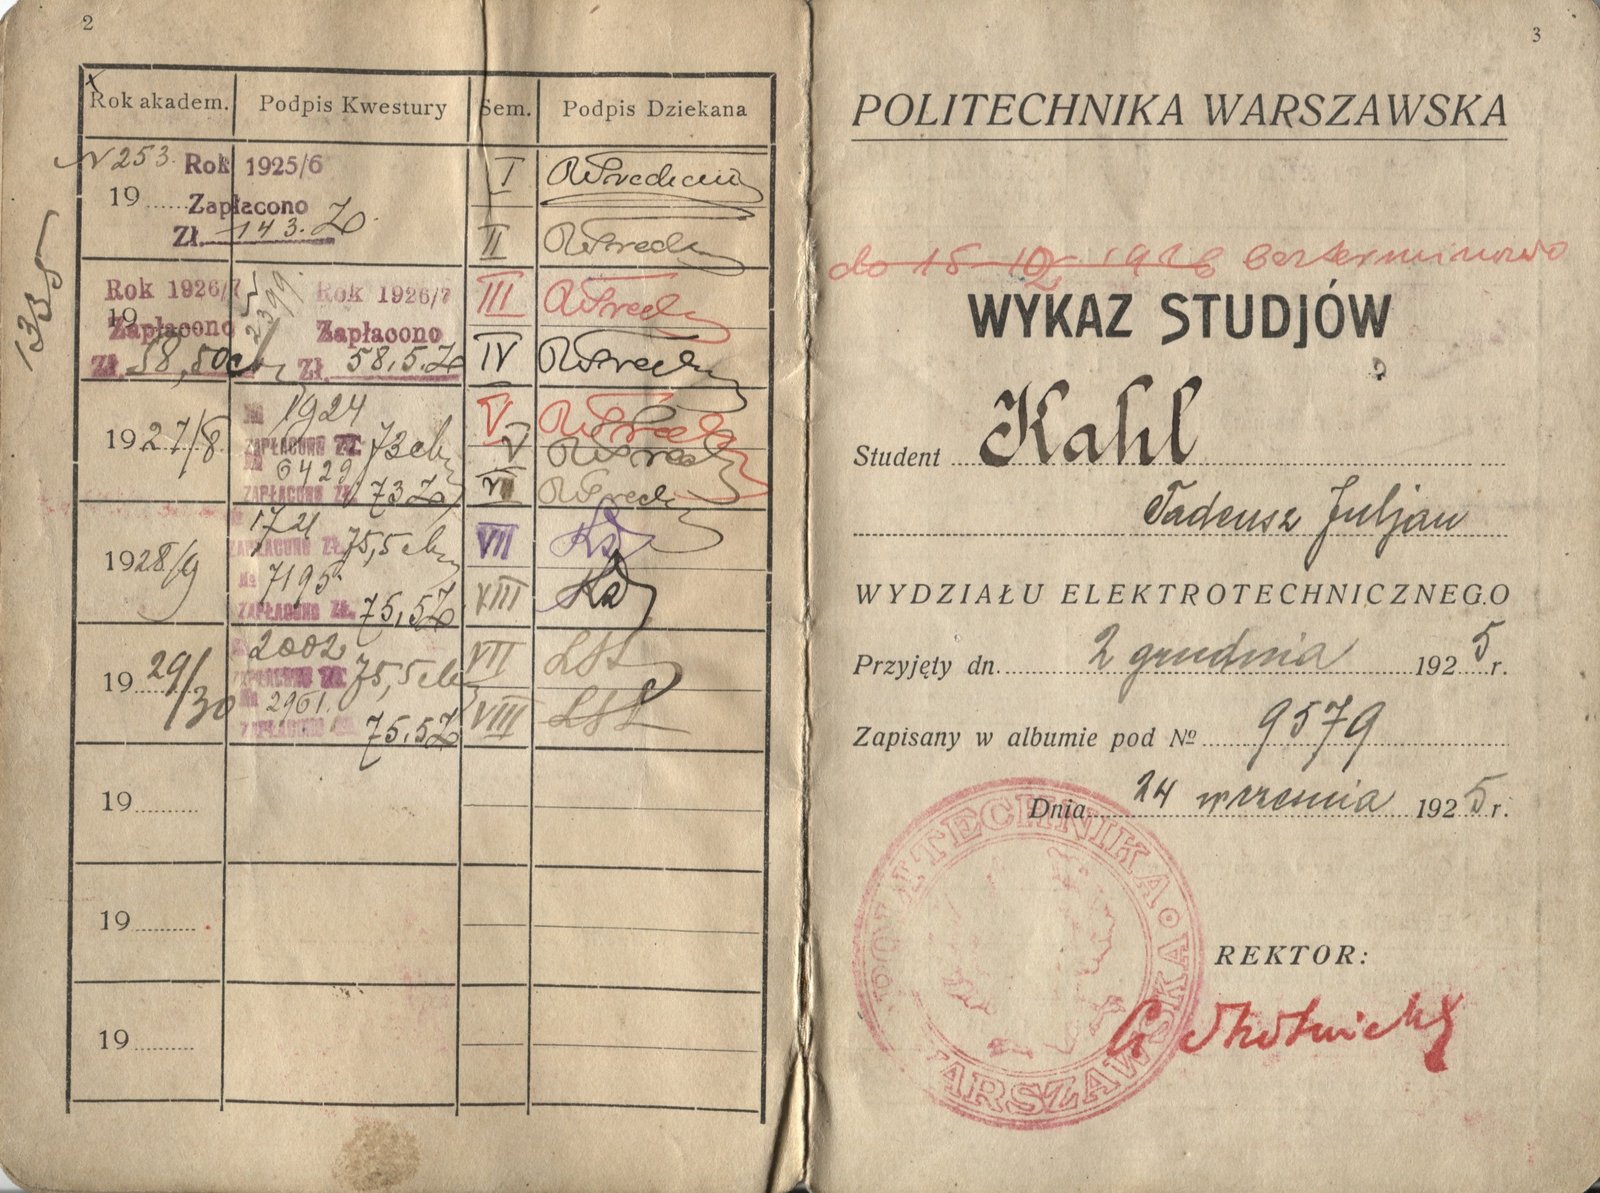 2
Rok akadem. Podpis Kwestury Sem. Podpis Dziekana
N 253. Rok 1925/6 I
19 Zapłacono
Zł. 143. II
Rok 1926/7 Rok 1926/7 III
19 2399
Zapłacono Zapłacono
Zł. 58,50 Zł. 58,5. IV
1335
№ 1924 V
1927/8 ZAPŁACONO ZŁ. 73 V
№ 6429
ZAPŁACONO ZŁ. 73 VI
№ 1721
ZAPŁACONO ZŁ. 75,5 VII
1928/9 № 7195
ZAPŁACONO ZŁ. 75,5 VIII
№ 2002
1929/30 ZAPŁACONO ZŁ. 75,5 VII
№ 2961.
ZAPŁACONO ZŁ. 75.5 VIII
19
19
19
3
POLITECHNIKA WARSZAWSKA
do 15-10 1926 bezterminowo
WYKAZ STUDJÓW
Student Kahl
Tadeusz Juljan
WYDZIAŁU ELEKTROTECHNICZNEGO
Przyjęty dn. 2 grudnia 1925 r.
Zapisany w albumie pod № 9579
Dnia 24 września 1925 r.
POLITECHNIKA WARSZAWSKA
REKTOR: